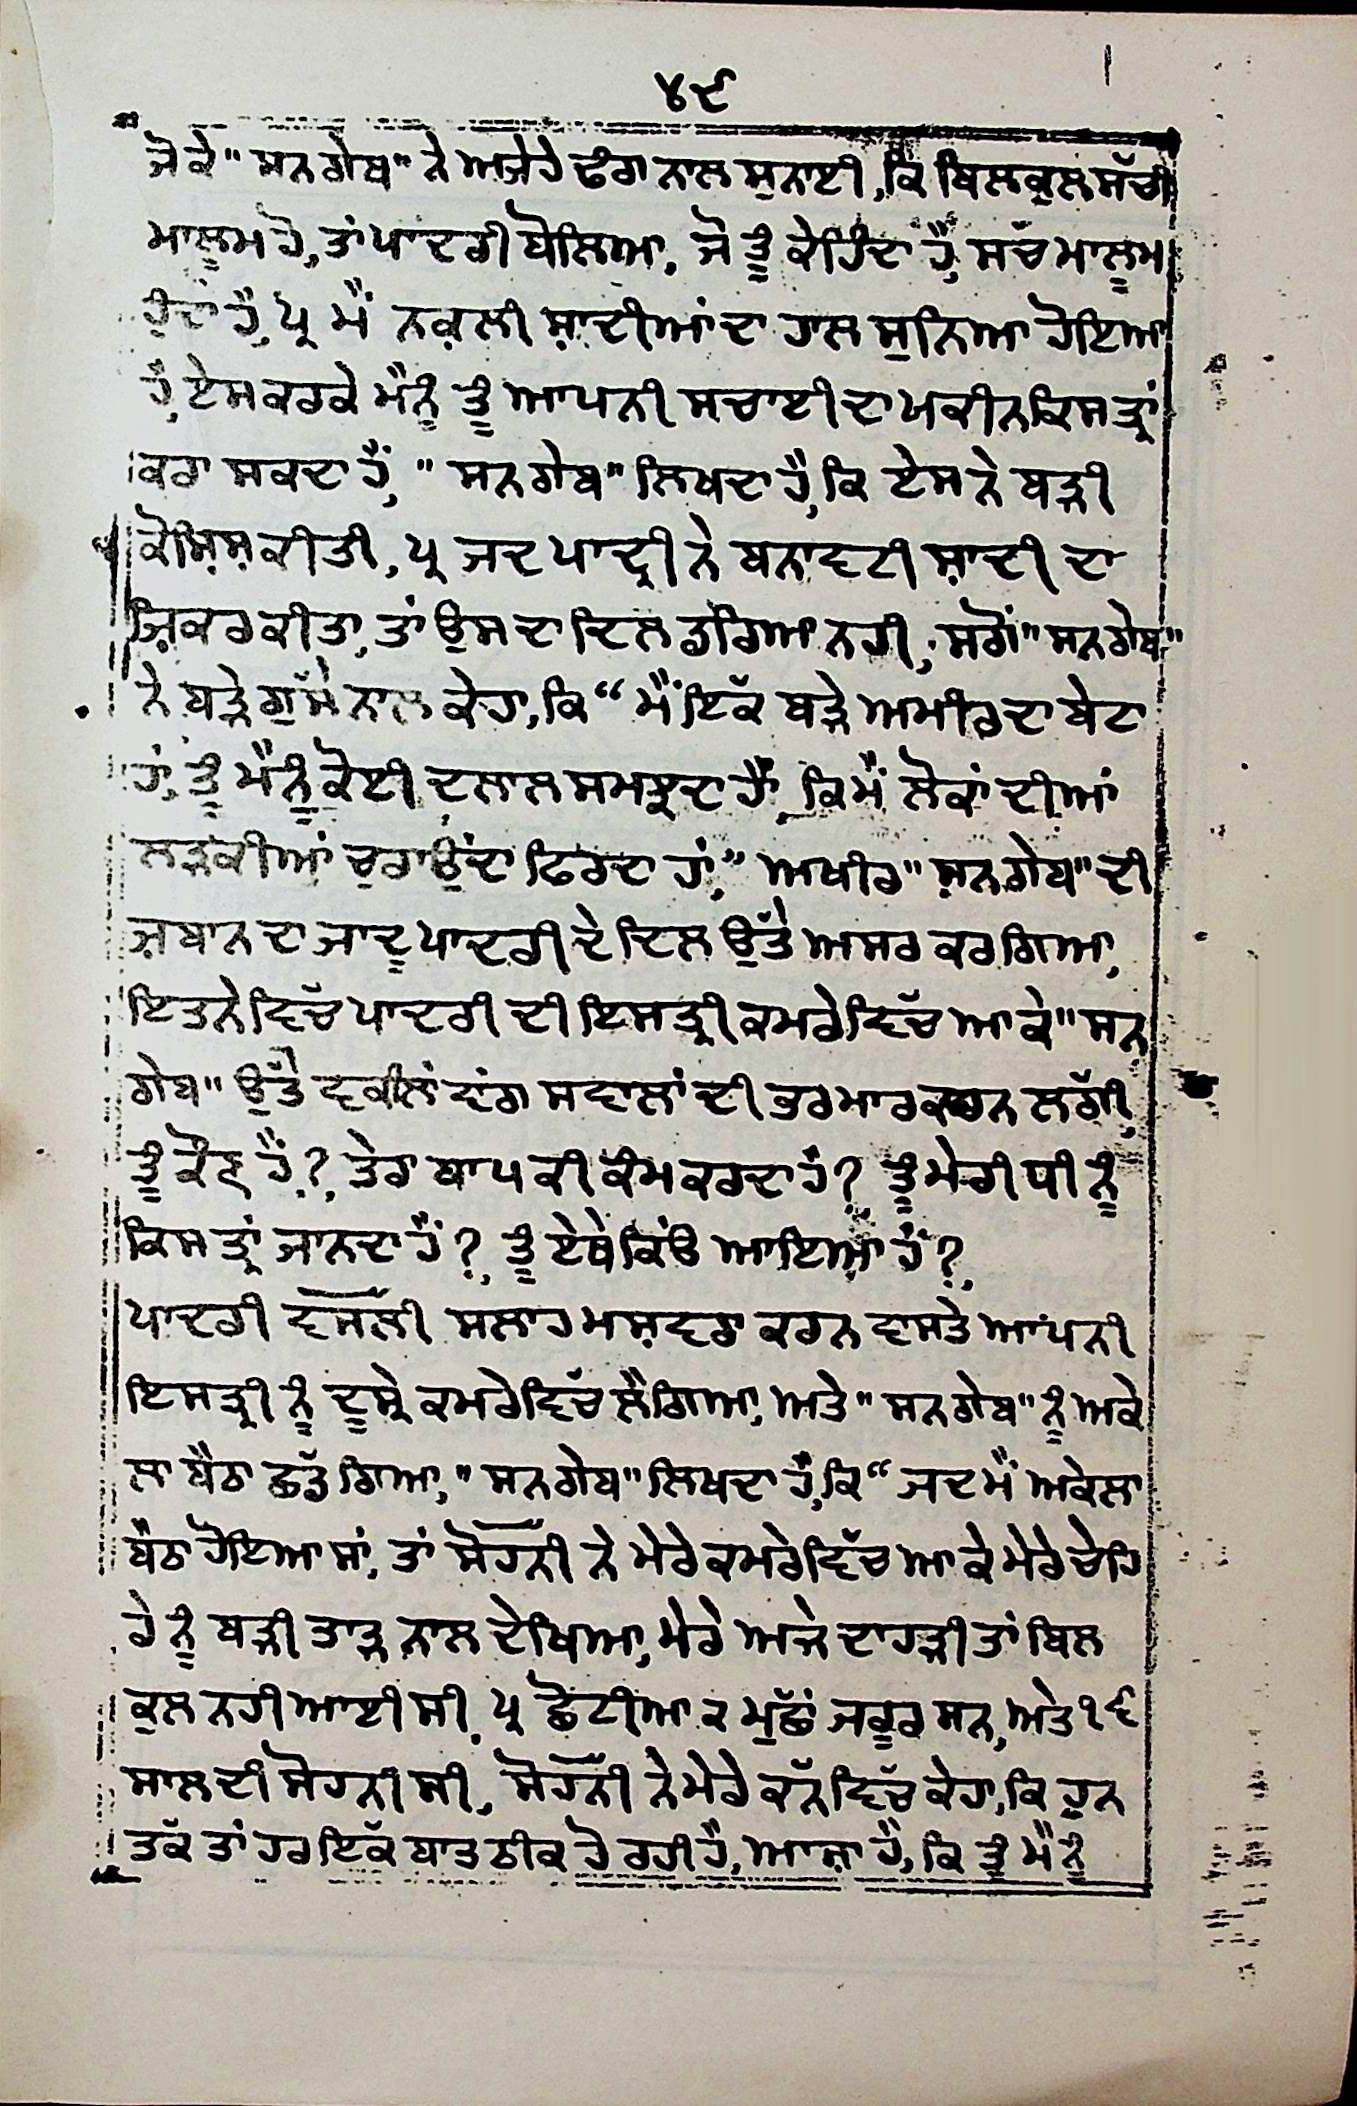 ੪੯
ਜੋ ਕੇ "ਸਨਗੇਬ" ਨੇ ਅਜੇਹੇ ਢੰਗ ਨਾਲ ਸੁਨਾਈ, ਕਿ ਬਿਲਕੁਲ ਸੱਚੀ
ਮਾਲੂਮ ਹੋ, ਤਾਂ ਪਾਦਰੀ ਬੋਲਿਆ, ਜੋ ਤੂੰ ਕੇਹਿੰਦਾ ਹੈਂ, ਸਚੱ ਮਾਲੂਮ
ਹੁੰਦਾ ਹੈ, ਪ੍ਰ ਮੈਂ ਨਕ਼ਲੀ ਸ਼ਾਦੀਆਂ ਦਾ ਹਾਲ ਸੁਨਿਆ ਹੋਇਆ
ਹੈ, ਏਸ ਕਰਕੇ ਮੈਨੂੰ ਤੂੰ ਆਪਨੀ ਸਚਾਈ ਦਾ ਯਕੀਨ ਕਿਸ ਤ੍ਰਾਂ
ਕਰਾ ਸਕਦਾ ਹੈਂ, "ਸਨਗੇਬ" ਲਿਖਦਾ ਹੈ, ਕਿ ਏਸ ਨੇ ਬੜੀ
ਕੋਸ਼ਿਸ਼ ਕੀਤੀ, ਪ੍ਰ ਜਦ ਪਾਦ੍ਰੀ ਨੇ ਬਨਾਵਟੀ ਸ਼ਾਦੀ ਦਾ
ਜ਼ਿਕਰ ਕੀਤਾ, ਤਾਂ ਉਸ ਦਾ ਦਿਲ ਡਰਿਆ ਨਹੀ, ਸਗੋਂ "ਸਨਗੇਬ"
ਨੇ ਬੜੇ ਗੁੱਸੇ ਨਾਲ ਕੇਹਾ, ਕਿ "ਮੈਂ ਇਕੱ ਬੜੇ ਅਮੀਰ ਦਾ ਬੇਟਾ
ਹਾਂ, ਤੂੰ ਮੈਨੂੰ ਕੋਈ ਦਲਾਲ ਸਮਝਦਾ ਹੈਂ, ਕਿ ਮੈਂ ਲੋਕਾਂ ਦੀਆਂ
ਲੜਕੀਆਂ ਚੁਰਾਉਂਦਾ ਫਿਰਦਾ ਹਾਂ," ਅਖੀਰ "ਸਨਗੇਬ" ਦੀ
ਜ਼ਬਾਨ ਦਾ ਜਾਦੂ ਪਾਦਰੀ ਦੇ ਦਿਲ ਉੱਤੇ ਅਸਰ ਕਰ ਗਿਆ,
ਇਤਨੇ ਵਿਚੱ ਪਾਦਰੀ ਦੀ ਇਸਤ੍ਰੀ ਕਮਰੇ ਵਿਚੱ ਆ ਕੇ "ਸਨ
ਗੇਬ" ਉੱਤੇ ਵਕੀਲਾਂ ਵਾਂਗ ਸਵਾਲਾਂ ਦੀ ਭਰਮਾਰ ਕਰਨ ਲਗੱੀ,
ਤੂੰ ਕੌਣ ਹੈਂ?, ਤੇਰਾ ਬਾਪ ਕੀ ਕੰਮ ਕਰਦਾ ਹੈ?, ਤੂੰ ਮੇਰੀ ਧੀ ਨੂੰ
ਕਿਸ ਤ੍ਰਾਂ ਜਾਨਦਾ ਹੈਂ?, ਤੂੰ ਏਥੇ ਕਿਂਉ ਆਇਆ ਹੈਂ?,
ਪਾਦਰੀ ਵੈਸਲੀ ਸਲਾਹ ਮਸ਼ਵਰਾ ਕਰਨ ਵਾਸਤੇ ਆਪਨੀ
ਇਸਤ੍ਰੀ ਨੂੰ ਦੂਸ੍ਰੇ ਕਮਰੇ ਵਿਚੱ ਲੈ ਗਿਆ, ਅਤੇ "ਸਨਗੇਬ" ਨੂੰ ਅਕੇ
ਲਾ ਬੈਠਾ ਛਡੱ ਗਿਆ, "ਸਨਗੇਬ" ਲਿਖਦਾ ਹੈ, ਕਿ "ਜਦ ਮੈਂ ਅਕੇਲਾ
ਬੈਠਾ ਹੋਇਆ ਸਾਂ, ਤਾਂ ਸੋਹਨੀ ਨੇ ਮੇਰੇ ਕਮਰੇ ਵਿਚੱ ਆ ਕੇ ਮੇਰੇ ਚੇਹਿ
ਰੇ ਨੂੰ ਬੜੀ ਤਾੜ ਨਾਲ ਦੇਖਿਆ, ਮੇਰੇ ਅਜੇ ਦਾਹੜੀ ਤਾਂ ਬਿਲ
ਕੁਲ ਨਹੀ ਆਈ ਸੀ, ਪ੍ਰ ਛੋਟੀਆ ੨ ਮੁੱਛਾਂ ਜਰੂਰ ਸਨ, ਅਤੇ ੧੬
ਸਾਲ ਦੀ ਸੋਹਨੀ ਸੀ, ਸੋਹਨੀ ਨੇ ਮੇਰੇ ਕਨੱ ਵਿਚੱ ਕੇਹਾ, ਕਿ ਹੁਨ
ਤਕੱ ਤਾਂ ਹਰ ਇਕੱ ਬਾਤ ਠੀਕ ਹੋ ਰਹੀ ਹੈ, ਆਸ਼ਾ ਹੈ, ਕਿ ਤੂੰ ਮੈਨੂੰ